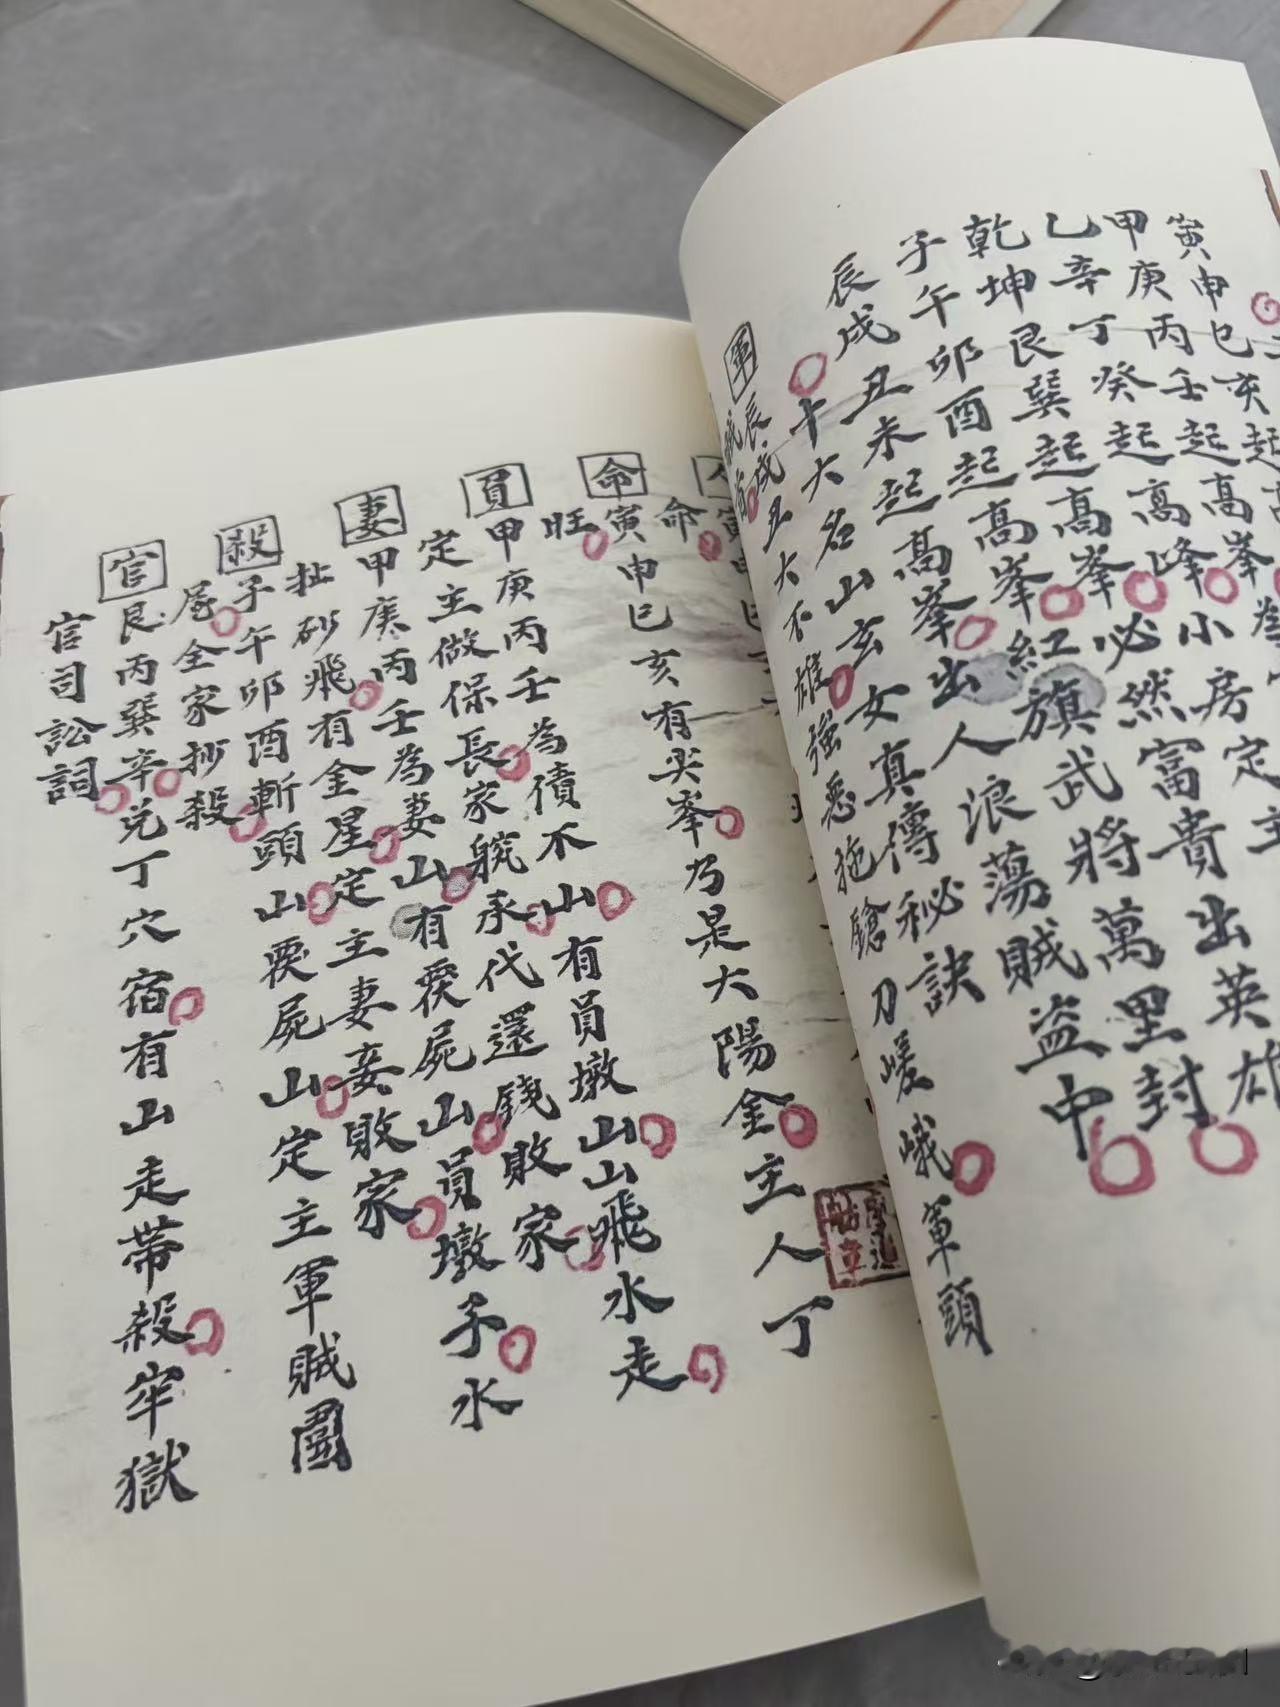 寅申巳亥起高峯
甲庚丙壬起高峰小房定主
乙辛丁癸起高峯必然富貴出英雄
乾坤艮巽起高峯紅旗武將萬里封
子午卯酉起高峯出人浪蕩賊盜中
辰戌丑未起高峯
十大名山玄女真傳秘訣
軍辰戌丑大不雄強惡拖鎗刀嵯峨軍頭
賊
命
命寅申巳亥有尖峯乃是大陽金主人丁
旺
買甲庚丙壬為債不山有員墩山山飛水走
定主做保長家躬承代還錢敗家
妻甲庚丙壬為妻山有覆屍山員墩子水
扯砂飛有金星定主妻妾敗家
殺子午卯酉斬頭山覆屍山定主軍賊圖
屠全家抄殺
官艮丙巽辛兌丁穴宿有山走帶殺牢獄
官司訟詞